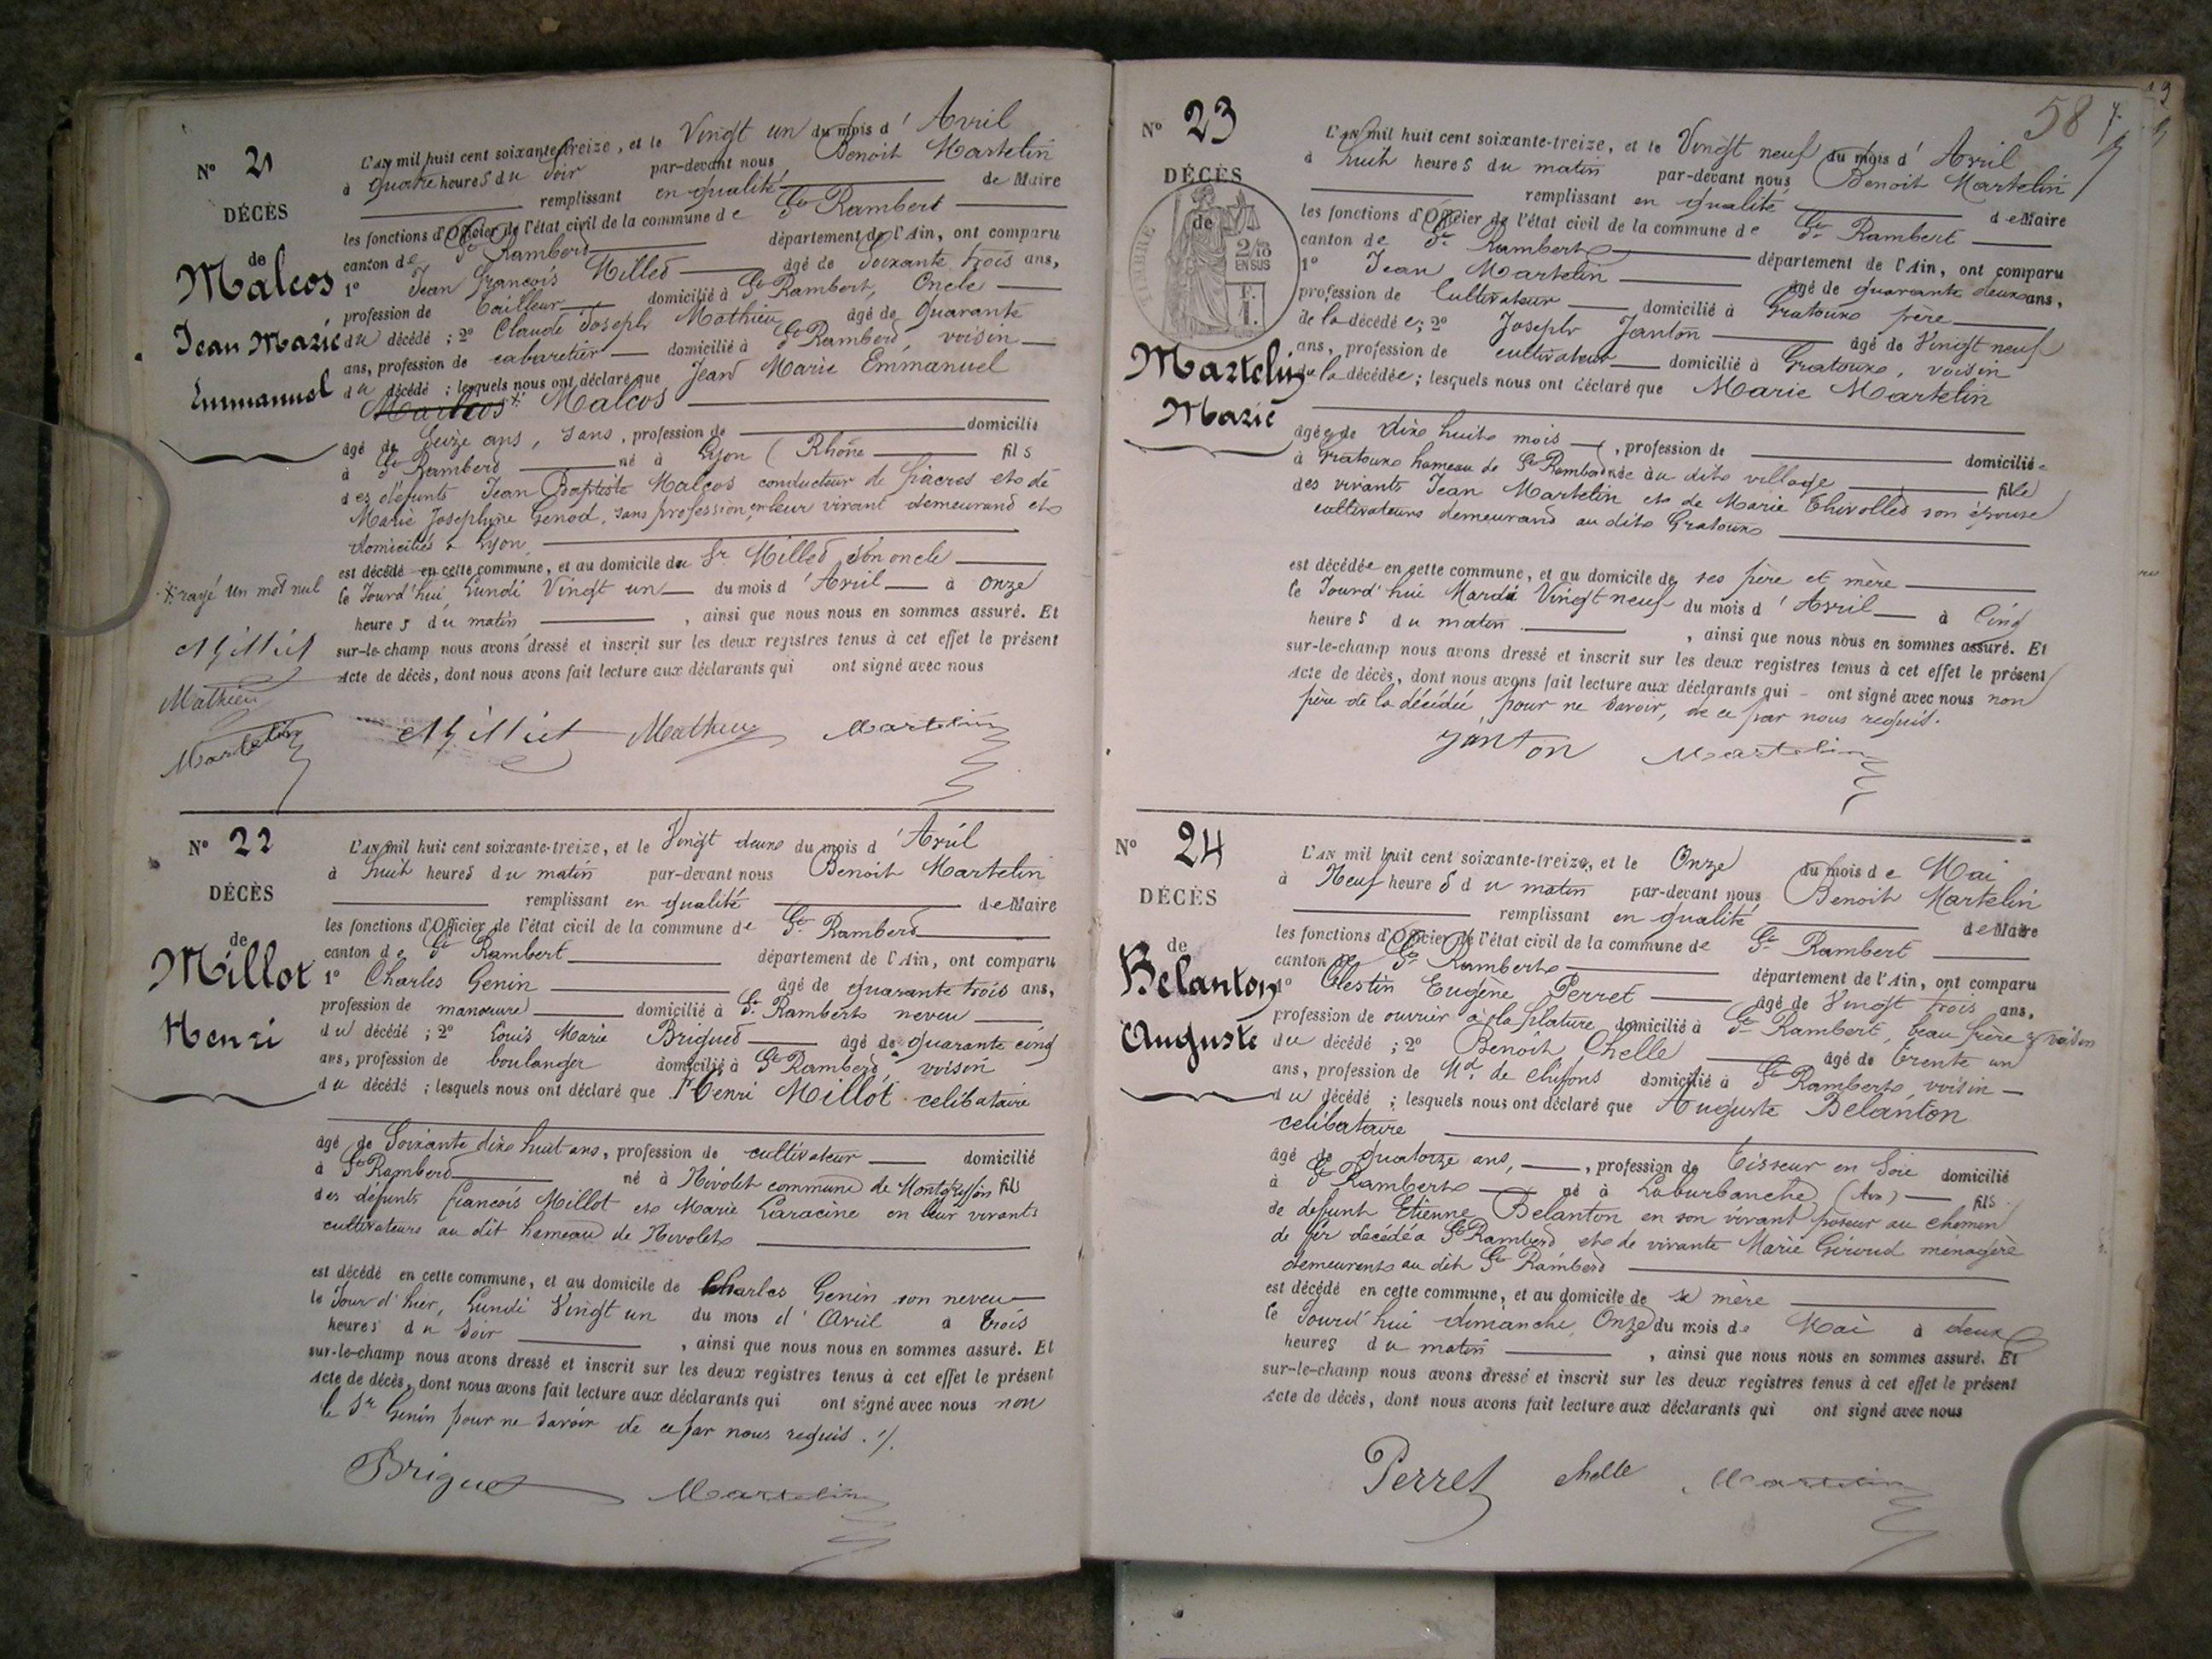 N° 21
DÉCÈS
de
Malcos
Jean Marie
Emmanuel
L'AN mil huit cent soixante-treize, et le Vingt un du mois d'Avril
à quatre heures du soir par-devant nous Benoit Martelin
remplissant en qualité de Maire
les fonctions d'Officier de l'état civil de la commune de St Rambert
canton de St Rambert département de l'Ain, ont comparu
1° Jean françois Milled âgé de Soixante trois ans,
profession de tailleur domicilié à St Rambert, Oncle
du décédé ; 2° Claude Joseph Mathieu âgé de Quarante
ans, profession de cabaretier domicilié à St Ramberd, voisin
du décédé ; lesquels nous ont déclaré que Jean Marie Emmanuel
Malcos
âgé de Seize ans, sans, profession de domicilié
à St Ramberd né à Lyon (Rhône fils
des défunts Jean Baptiste Malcos conducteur de fiacres et de
Marie Josephine Genod, sans profession, en leur vivant demeurand et
domiciliés à Lyon
est décédé en cette commune, et au domicile du Sr Milled son oncle
le Jourd'hui Lundi Vingt un du mois d'Avril à onze
heures du matin , ainsi que nous nous en sommes assuré. Et
sur-le-champ nous avons dressé et inscrit sur les deux registres tenus à cet effet le présent
Acte de décès, dont nous avons fait lecture aux déclarants qui ont signé avec nous
rayé un mot nul
Milliet
Mathieu
Martelin
Milliet Mathieu Martelin
N° 22
DÉCÈS
de
Millot
Henri
L'AN mil huit cent soixante-treize, et le Vingt deux du mois d'Avril
à huit heures du matin par-devant nous Benoit Martelin
remplissant en qualité de Maire
les fonctions d'Officier de l'état civil de la commune de St Ramberd
canton de St Rambert département de l'Ain, ont comparu
1° Charles Genin âgé de quarante trois ans,
profession de manœuvre domicilié à St Ramberts neveu
du décédé ; 2° Louis Marie Brigued âgé de quarante cinq
ans, profession de boulanger domicilié à St Ramberd, voisin
du décédé ; lesquels nous ont déclaré que Henri Millot celibataire
âgé de Soixante dix huit ans, profession de cultivateur domicilié
à St Ramberd né à Nivolet commune de Montgriffon fils
des défunts françois Millot et Marie Laracine en leur vivants
cultivateurs au dit hameau de Nivolets
est décédé en cette commune, et au domicile de Charles Genin son neveu
le Jour d'hier, Lundi Vingt un du mois d'Avril à trois
heures du soir , ainsi que nous nous en sommes assuré. Et
sur-le-champ nous avons dressé et inscrit sur les deux registres tenus à cet effet le présent
Acte de décès, dont nous avons fait lecture aux déclarants qui ont signé avec nous non
le Sr Genin pour ne savoir de ce par nous requis.
Briguet Martelin
58
N° 23
DÉCÈS
de
TIMBRE
2/10
EN SUS
F.
1.
Martelin
Marie
L'AN mil huit cent soixante-treize, et le Vingt neuf du mois d'Avril
à huit heures du matin par-devant nous Benoit Martelin
remplissant en qualité de Maire
les fonctions d'Officier de l'état civil de la commune de St Rambert
canton de St Ramberts département de l'Ain, ont comparu
1° Jean Martelin âgé de quarante deux ans,
profession de Cultivateur domicilié à Gratoux père
de la décédée ; 2° Joseph Janton âgé de Vingt neuf
ans, profession de cultivateur domicilié à Gratoux, voisin
de la décédée ; lesquels nous ont déclaré que Marie Martelin
âgée de dix huit mois , profession de domiciliée
à Gratoux hameau de St Ramberd née au dit village fille
des vivants Jean Martelin et de Marie Thivolled son épouse
cultivateurs demeurand au dit Gratoux
est décédée en cette commune, et au domicile de ses père et mère
le Jourd'hui Mardi Vingt neuf du mois d'Avril à Cinq
heures du matin , ainsi que nous nous en sommes assuré. Et
sur-le-champ nous avons dressé et inscrit sur les deux registres tenus à cet effet le présent
Acte de décès, dont nous avons fait lecture aux déclarants qui ont signé avec nous non
père de la décédée, pour ne savoir, de ce par nous requis.
Janton Martelin
N° 24
DÉCÈS
de
Belanton
Auguste
L'AN mil huit cent soixante-treize, et le Onze du mois de Mai
à Neuf heures du matin par-devant nous Benoit Martelin
remplissant en qualité de Maire
les fonctions d'Officier de l'état civil de la commune de St Rambert
canton de St Ramberts département de l'Ain, ont comparu
1° Célestin Eugène Perret âgé de Vingt trois ans,
profession de ouvrier à la filature domicilié à St Rambert, beau frère & voisin
du décédé ; 2° Benoit Chelle âgé de trente un
ans, profession de Md de chifons domicilié à St Ramberts voisin
du décédé ; lesquels nous ont déclaré que Auguste Belanton
celibataire
âgé de quatorze ans, , profession de tisseur en Soie domicilié
à St Ramberts né à Laburbanche (Ain) fils
de defunt Etienne Belanton en son vivant poseur au chemin
de fer décédé à St Ramberd et de vivante Marie Giroud ménagère
demeurents au dit St Ramberd
est décédé en cette commune, et au domicile de sa mère
le Jourd'hui dimanche, Onze du mois de Mai à deux
heures du matin , ainsi que nous nous en sommes assuré. Et
sur-le-champ nous avons dressé et inscrit sur les deux registres tenus à cet effet le présent
Acte de décès, dont nous avons fait lecture aux déclarants qui ont signé avec nous
Perret chelle Martelin